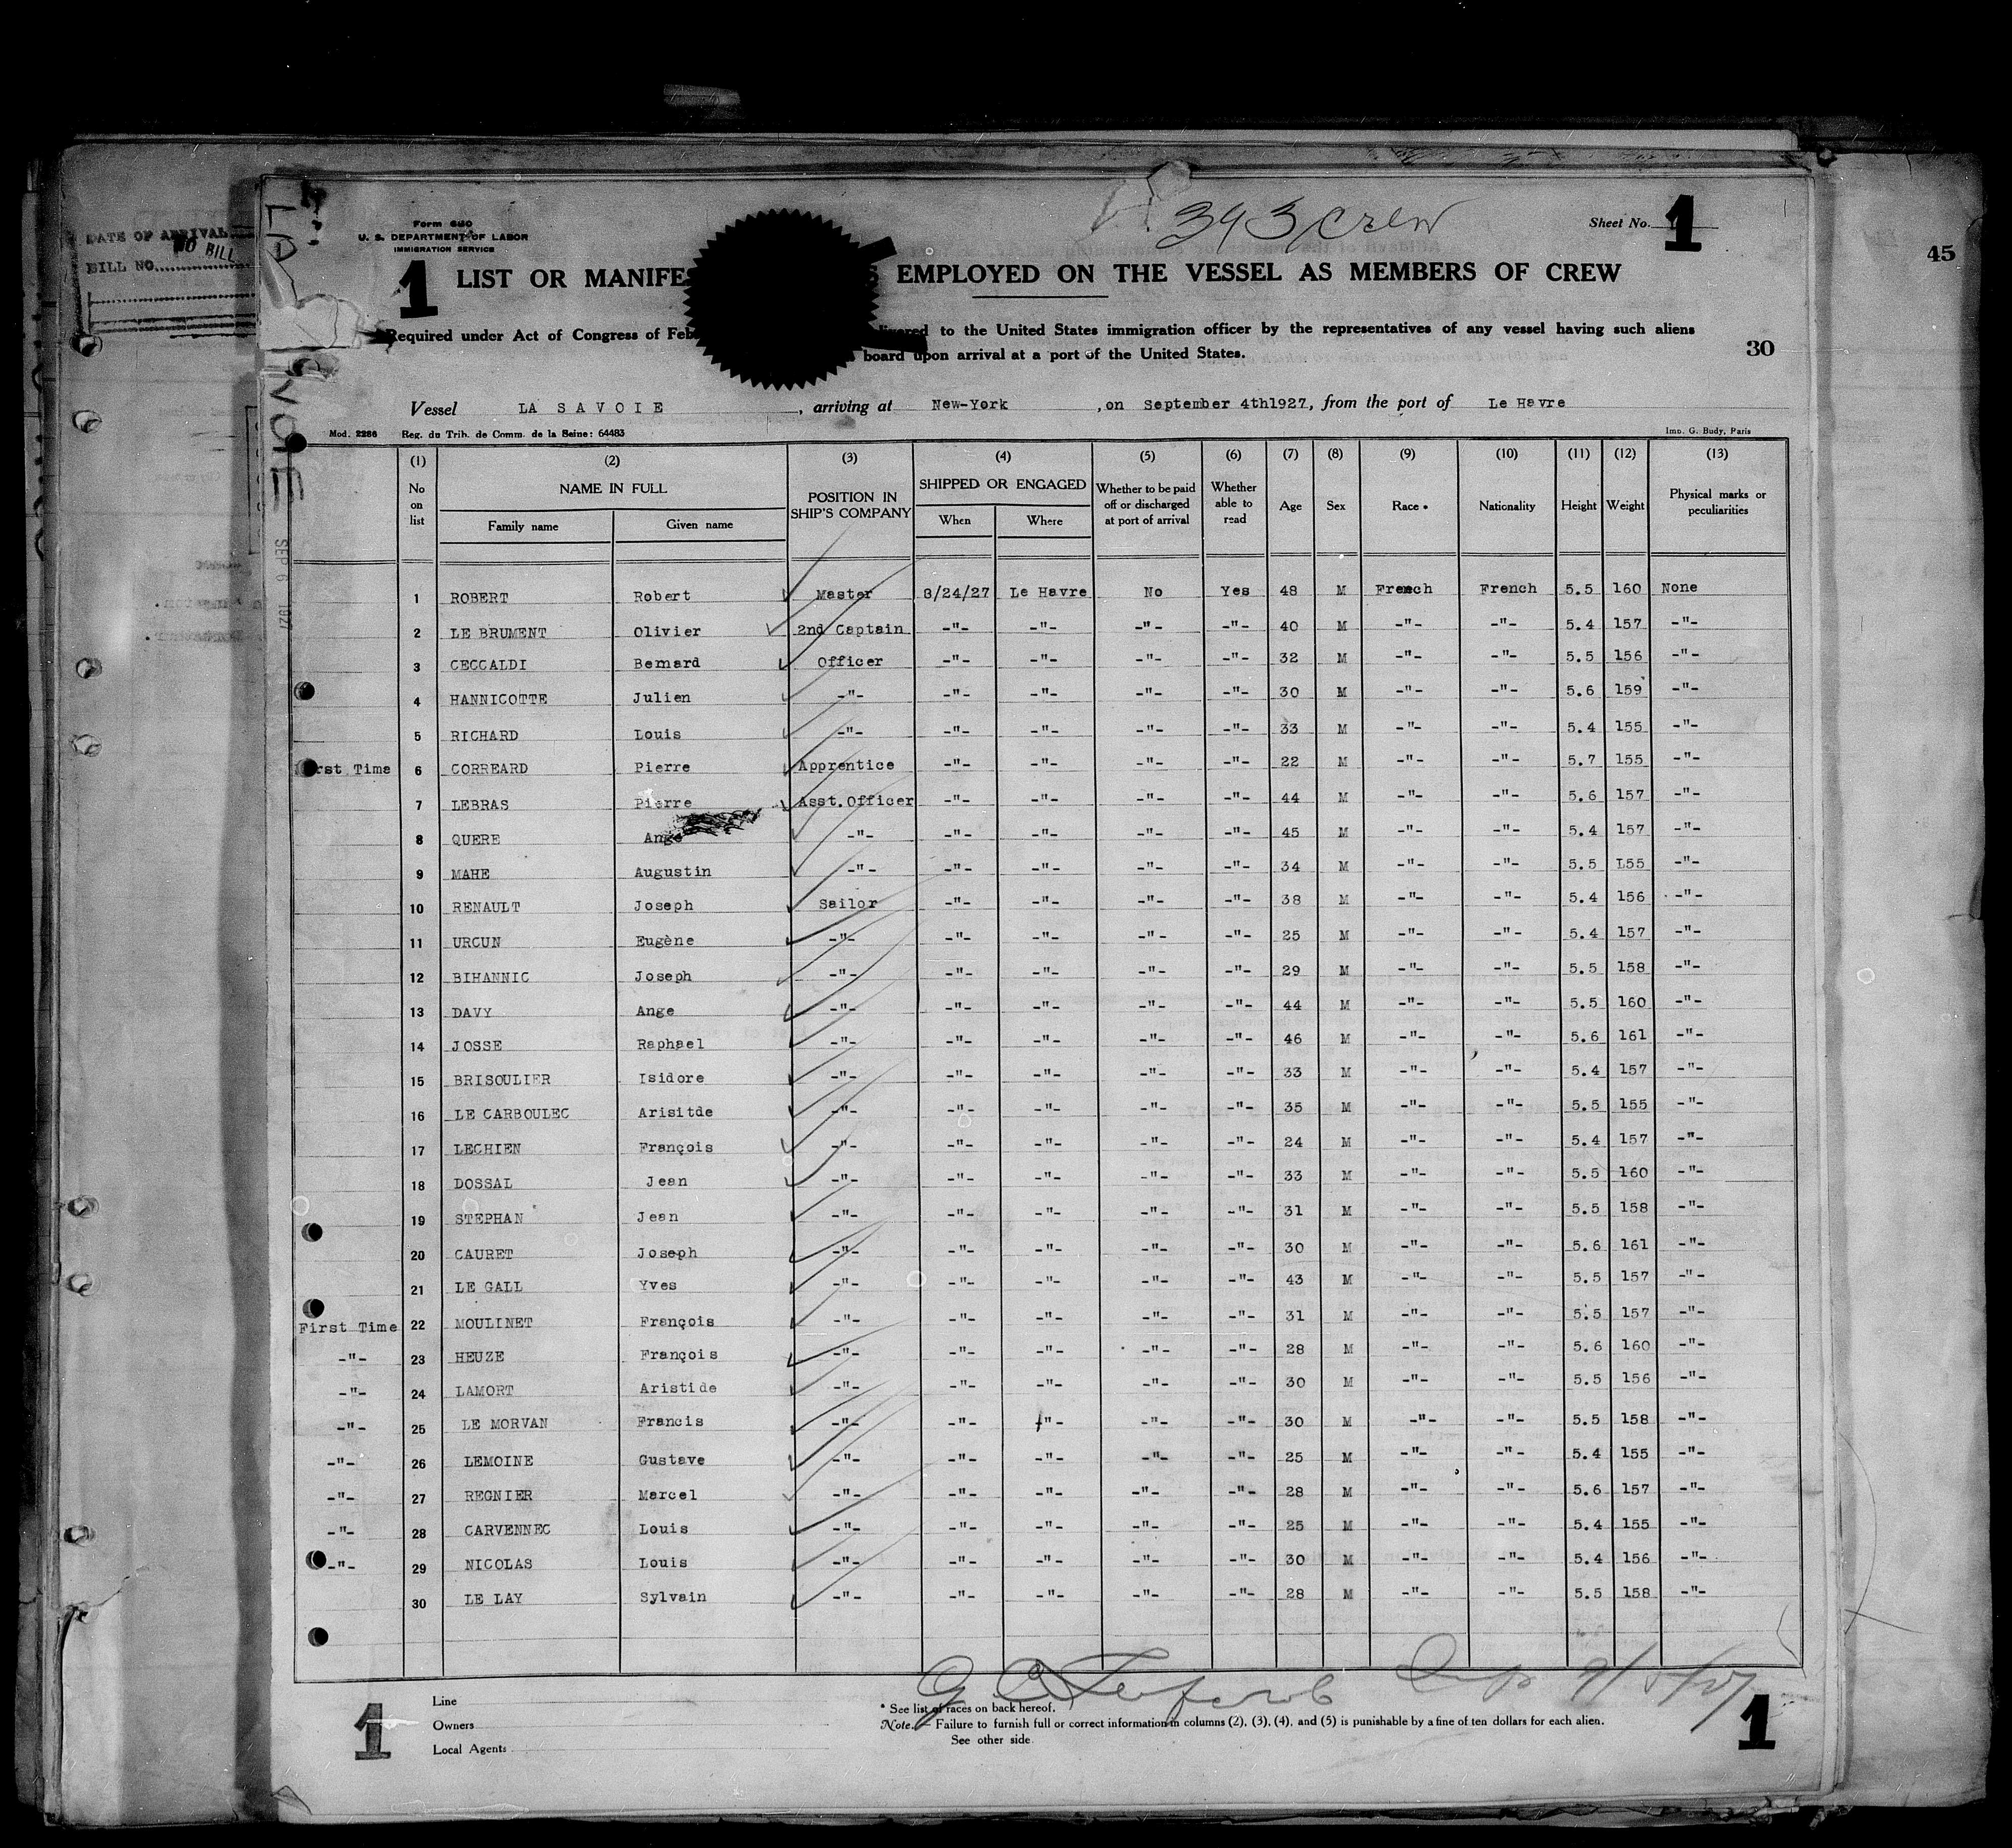 DATE OF ARRIVAL
NO BILL
BILL NO.
Form 680
U. S. DEPARTMENT OF LABOR
IMMIGRATION SERVICE
LA
SAVOIE
SEP 6 1927
393 crew
Sheet No. 1
45
1 LIST OR MANIFES EMPLOYED ON THE VESSEL AS MEMBERS OF CREW
Required under Act of Congress of Feb livered to the United States immigration officer by the representatives of any vessel having such aliens
board upon arrival at a port of the United States.
30
Vessel LA SAVOIE, arriving at New-York, on September 4th1927, from the port of Le Havre
Mod. 2286 Reg. du Trib. de Comm. de la Seine: 64483 Imp. G. Budy, Paris
(1) (2) (3) (4) (5) (6) (7) (8) (9) (10) (11) (12) (13)
No on list NAME IN FULL Family name Given name POSITION IN SHIP'S COMPANY SHIPPED OR ENGAGED When Where Whether to be paid off or discharged at port of arrival Whether able to read Age Sex Race * Nationality Height Weight Physical marks or peculiarities
1 ROBERT Robert Master 8/24/27 Le Havre No Yes 48 M French French 5.5 160 None
2 LE BRUMENT Olivier 2nd Captain -"- -"- -"- -"- 40 M -"- -"- 5.4 157 -"-
3 CECCALDI Bernard Officer -"- -"- -"- -"- 32 M -"- -"- 5.5 156 -"-
4 HANNICOTTE Julien -"- -"- -"- -"- -"- 30 M -"- -"- 5.6 159 -"-
5 RICHARD Louis -"- -"- -"- -"- -"- 33 M -"- -"- 5.4 155 -"-
rst Time 6 CORREARD Pierre Apprentice -"- -"- -"- -"- 22 M -"- -"- 5.7 155 -"-
7 LEBRAS Pierre Asst.Officer -"- -"- -"- -"- 44 M -"- -"- 5.6 157 -"-
8 QUERE Ange -"- -"- -"- -"- -"- 45 M -"- -"- 5.4 157 -"-
9 MAHE Augustin -"- -"- -"- -"- -"- 34 M -"- -"- 5.5 155 -"-
10 RENAULT Joseph Sailor -"- -"- -"- -"- 38 M -"- -"- 5.4 156 -"-
11 URCUN Eugène -"- -"- -"- -"- -"- 25 M -"- -"- 5.4 157 -"-
12 BIHANNIC Joseph -"- -"- -"- -"- -"- 29 M -"- -"- 5.5 158 -"-
13 DAVY Ange -"- -"- -"- -"- -"- 44 M -"- -"- 5.5 160 -"-
14 JOSSE Raphael -"- -"- -"- -"- -"- 46 M -"- -"- 5.6 161 -"-
15 BRISOULIER Isidore -"- -"- -"- -"- -"- 33 M -"- -"- 5.4 157 -"-
16 LE CARBOULEC Arisitde -"- -"- -"- -"- -"- 35 M -"- -"- 5.5 155 -"-
17 LECHIEN François -"- -"- -"- -"- -"- 24 M -"- -"- 5.4 157 -"-
18 DOSSAL Jean -"- -"- -"- -"- -"- 33 M -"- -"- 5.5 160 -"-
19 STEPHAN Jean -"- -"- -"- -"- -"- 31 M -"- -"- 5.5 158 -"-
20 CAURET Joseph -"- -"- -"- -"- -"- 30 M -"- -"- 5.6 161 -"-
21 LE GALL Yves -"- -"- -"- -"- -"- 43 M -"- -"- 5.5 157 -"-
First Time 22 MOULINET François -"- -"- -"- -"- -"- 31 M -"- -"- 5.5 157 -"-
-"- 23 HEUZE François -"- -"- -"- -"- -"- 28 M -"- -"- 5.6 160 -"-
-"- 24 LAMORT Aristide -"- -"- -"- -"- -"- 30 M -"- -"- 5.5 156 -"-
-"- 25 LE MORVAN Francis -"- -"- -"- -"- -"- 30 M -"- -"- 5.5 158 -"-
-"- 26 LEMOINE Gustave -"- -"- -"- -"- -"- 25 M -"- -"- 5.4 155 -"-
-"- 27 REGNIER Marcel -"- -"- -"- -"- -"- 28 M -"- -"- 5.6 157 -"-
-"- 28 CARVENNEC Louis -"- -"- -"- -"- -"- 25 M -"- -"- 5.4 155 -"-
-"- 29 NICOLAS Louis -"- -"- -"- -"- -"- 30 M -"- -"- 5.4 156 -"-
30 LE LAY Sylvain -"- -"- -"- -"- -"- 28 M -"- -"- 5.5 158 -"-
Line
Owners
Local Agents
* See list of races on back hereof.
Note. — Failure to furnish full or correct information in columns (2), (3), (4), and (5) is punishable by a fine of ten dollars for each alien.
See other side.
1
1